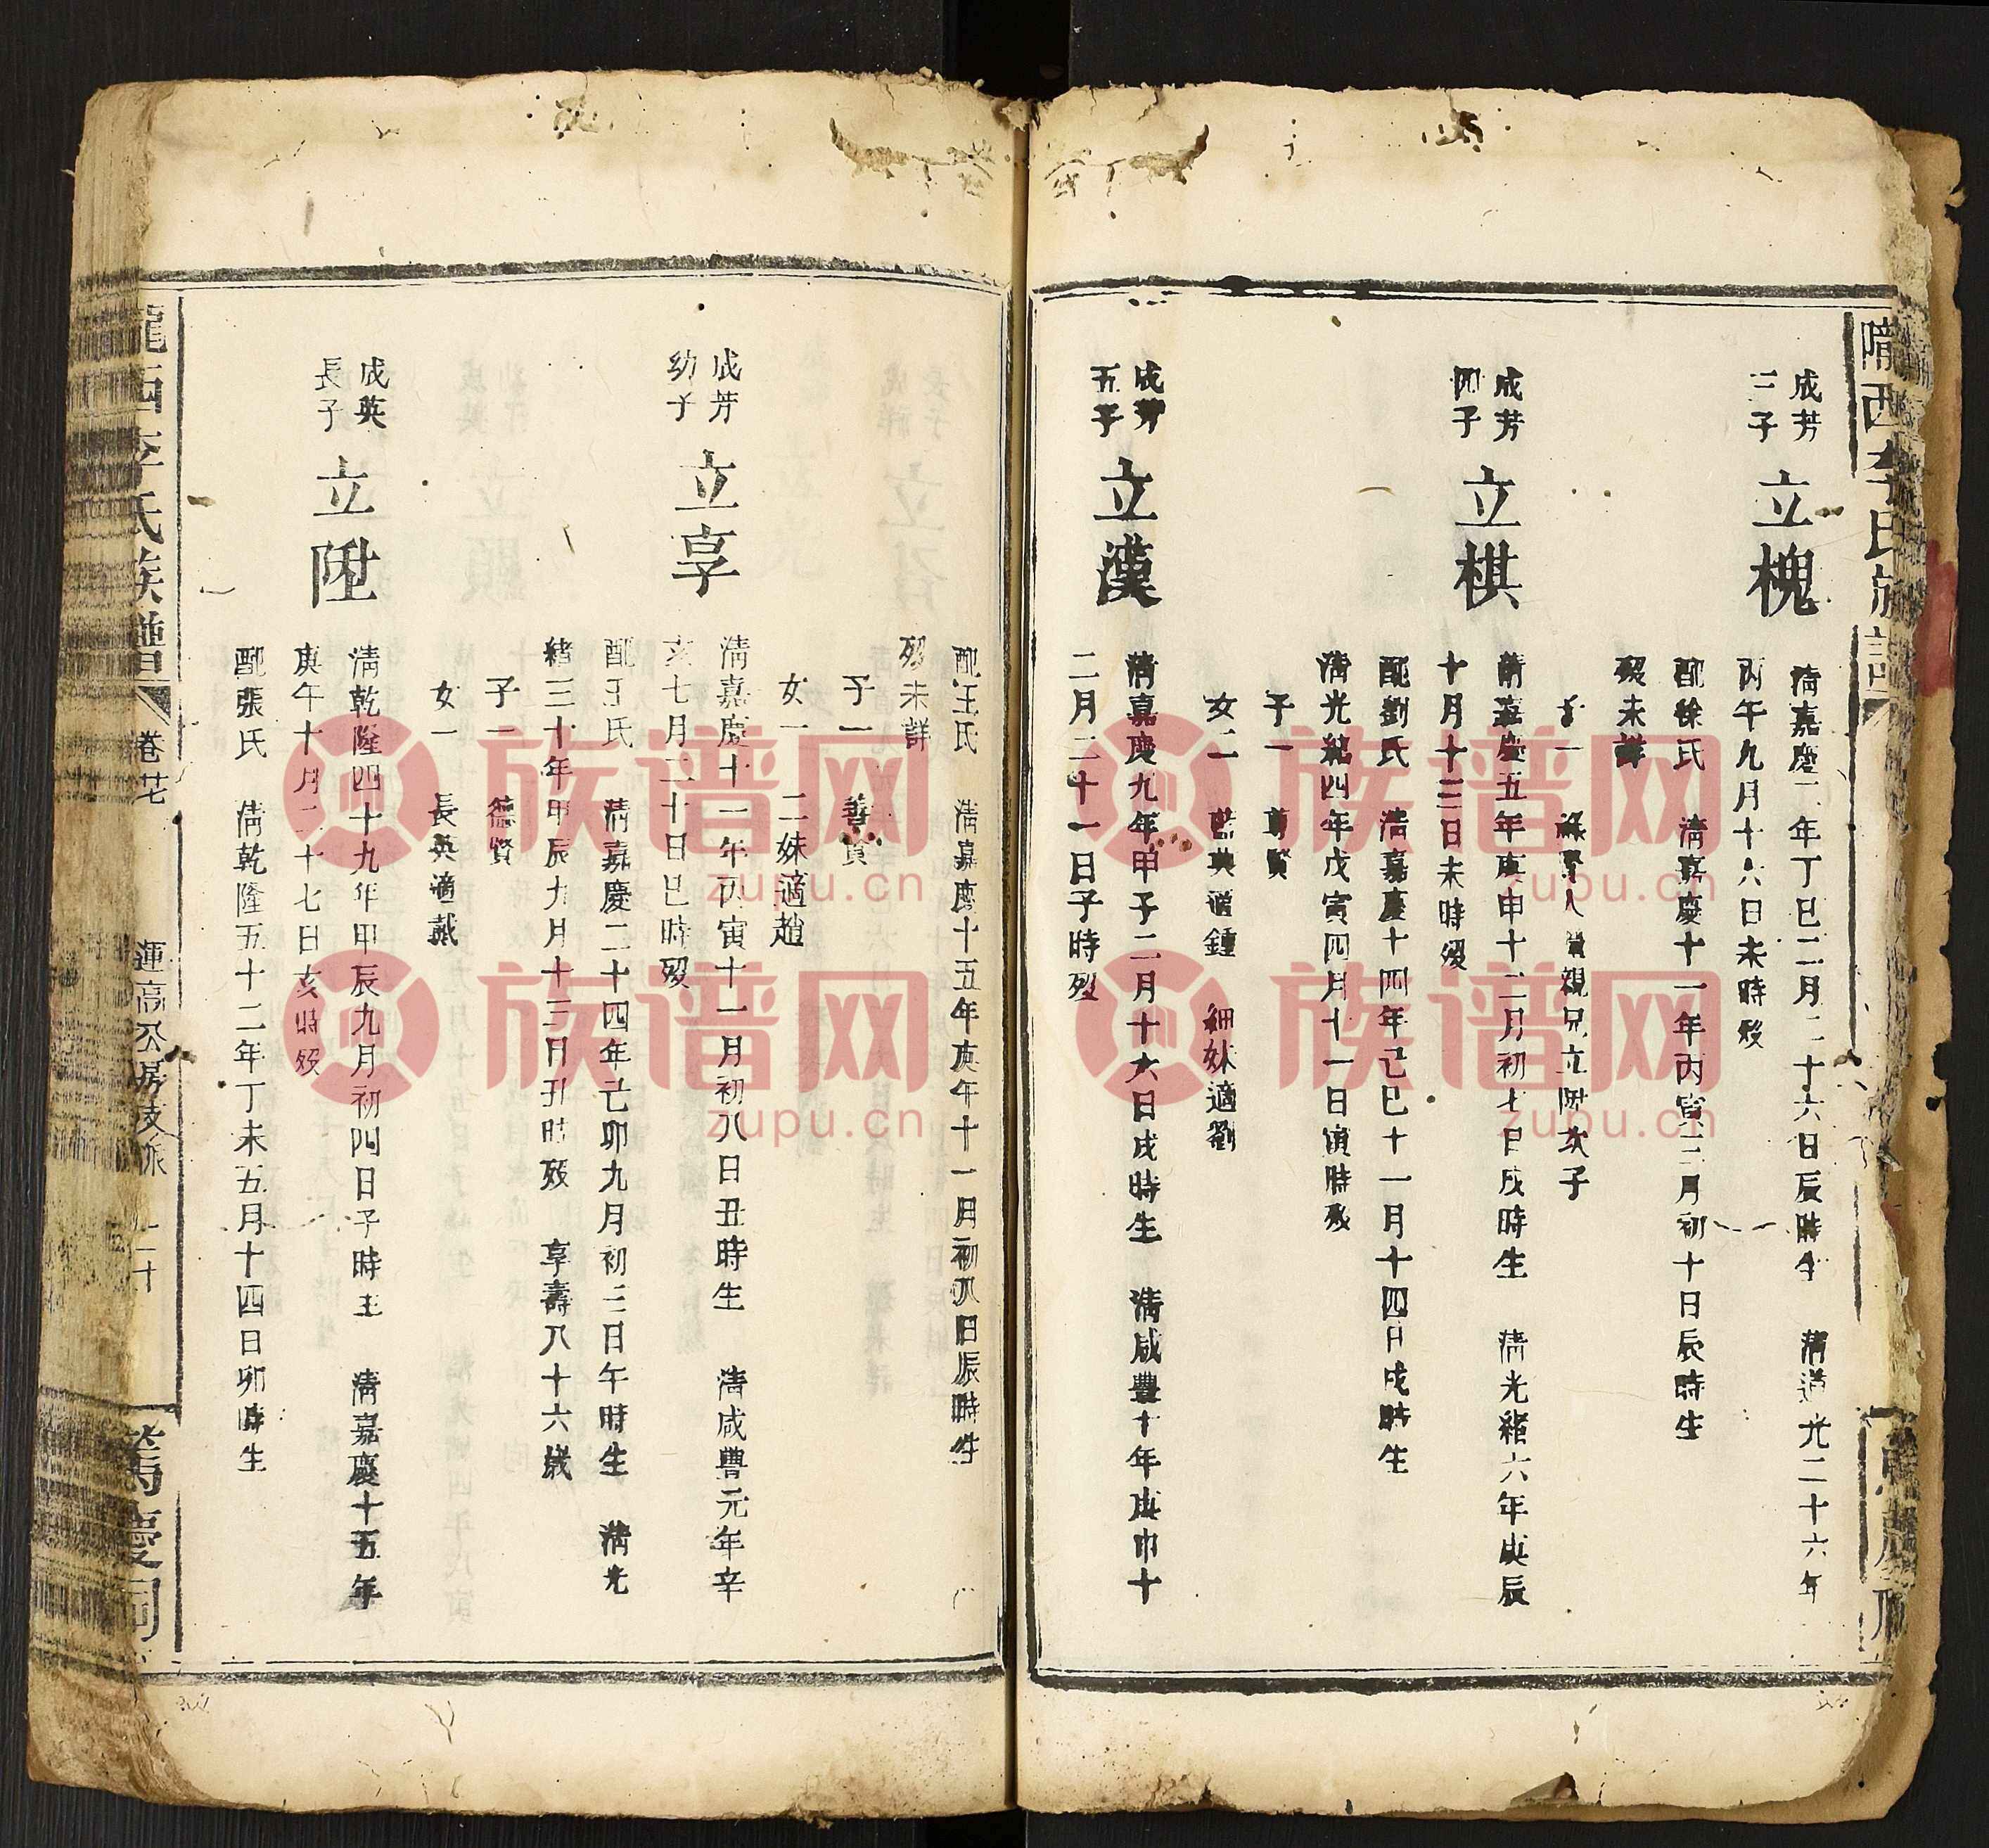 隴西李氏族譜
萬慶祠
成芳
三子
立槐
清嘉慶二年丁巳二月二十六日辰時生 清道光二十六年
丙午九月十六日未時歿
配徐氏 清嘉慶十一年丙寅三月初十日辰時生
歿未詳
子一
親兄立陞次子
成芳
四子
立棋
清嘉慶五年庚申十二月初七日戌時生 清光緒六年庚辰
十月十三日未時歿
配劉氏 清嘉慶十四年己巳十一月十四日戌時生
清光緒四年戊寅四月十一日寅時歿
子一 賢
女二 適鍾 細妹適劉
成芳
五子
立漢
清嘉慶九年甲子二月十六日戌時生 清咸豐十年庚申十
二月二十一日子時歿
配王氏 清嘉慶十五年庚午十一月初八日辰時生
歿未詳
子一 善賢
女一 二妹適趙
成芳
幼子
立享
清嘉慶十一年丙寅十一月初八日丑時生 清咸豐元年辛
亥七月二十日巳時歿
配王氏 清嘉慶二十四年己卯九月初三日午時生 清光
緒三十年甲辰九月十三日卯時歿 享壽八十六歲
子一 德賢
女一 長英適戴
成英
長子
立陞
清乾隆四十九年甲辰九月初四日子時生 清嘉慶十五年
庚午十月二十七日亥時歿
配張氏 清乾隆五十二年丁未五月十四日卯時生
隴西李氏族譜 卷廿 運高公房支派 二十 萬慶祠
族谱网
zupu.cn
族谱网
zupu.cn
族谱网
zupu.cn
族谱网
zupu.cn